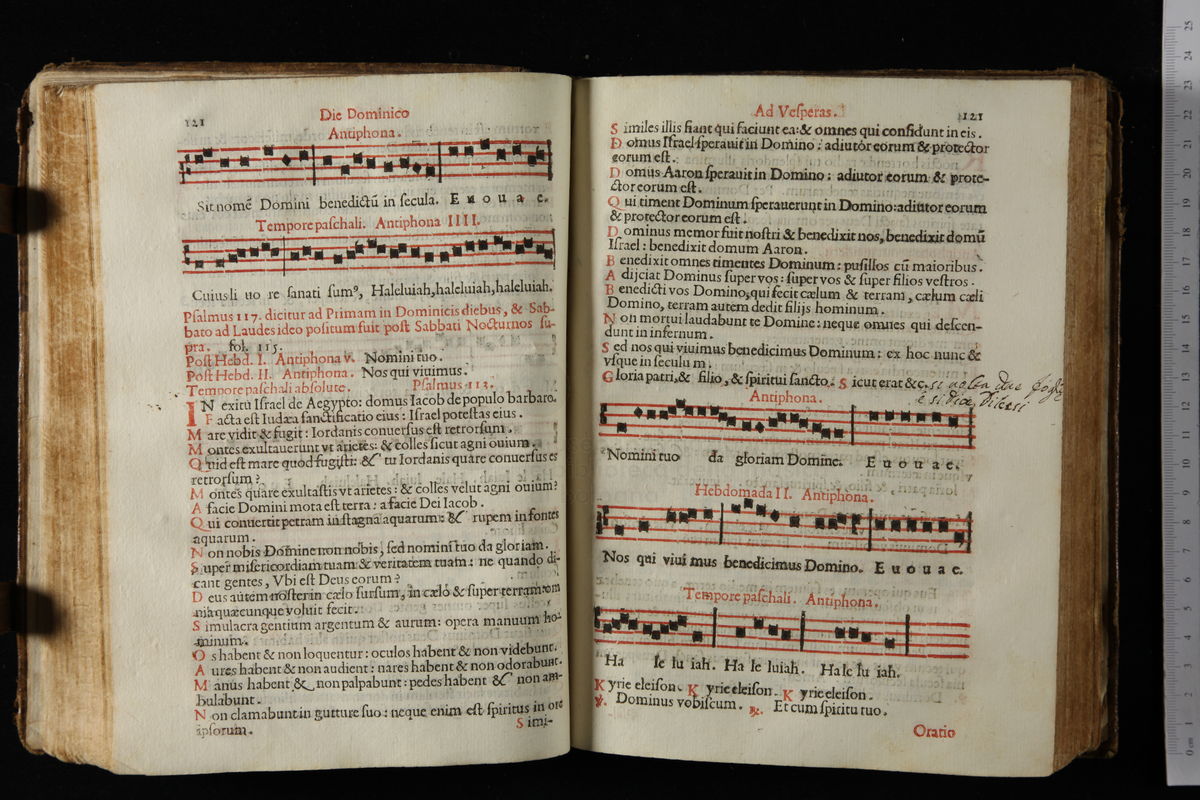 121
Die Dominico
Antiphona.
Sit nomē Domini benedictū in secula. E u o u a e.
Tempore paschali. Antiphona IIII.
Cuius li uo re sanati sumꝰ, Haleluiah, haleluiah, haleluiah.
Psalmus 117. dicitur ad Primam in Dominicis diebus, & Sab-
bato ad Laudes ideo positum fuit post Sabbati Nocturnos su-
pra. fol. 115.
Post Hebd. I. Antiphona v. Nomini tuo.
Post Hebd. II. Antiphona. Nos qui viuimus.
Tempore paschali absolute. Psalmus 113.
IN exitu Israel de Aegypto: domus Iacob de populo barbaro.
Facta est Iudæa sanctificatio eius: Israel potestas eius.
Mare vidit & fugit: Iordanis conuersus est retrorsum.
Montes exultauerunt vt arietes: & colles sicut agni ouium.
Quid est mare quod fugisti: & tu Iordanis quare conuersus es
retrorsum?
Montes quare exultastis vt arietes: & colles velut agni ouium?
A facie Domini mota est terra: a facie Dei Iacob.
Qui conuertit petram in stagna aquarum: & rupem in fontes
aquarum.
Non nobis Domine non nobis, sed nomini tuo da gloriam.
Super misericordiam tuam & veritatem tuam: ne quando di-
cant gentes, Vbi est Deus eorum?
Deus autem noster in cælo sursum, in cælo & super terram om
nia quæcunque voluit fecit.
Simulacra gentium argentum & aurum: opera manuum ho-
minum.
Os habent & non loquentur: oculos habent & non videbunt.
Aures habent & non audient: nares habent & non odorabunt.
Manus habent & non palpabunt: pedes habent & non am-
bulabunt.
Non clamabunt in gutture suo: neque enim est spiritus in ore
ipsorum.
Simi-
Ad Vesperas.
121
Similes illis fiant qui faciunt ea: & omnes qui confidunt in eis.
Domus Israel sperauit in Domino: adiutor eorum & protector
eorum est.
Domus Aaron sperauit in Domino: adiutor eorum & prote-
ctor eorum est.
Qui timent Dominum sperauerunt in Domino: adiutor eorum
& protector eorum est.
Dominus memor fuit nostri & benedixit nos, benedixit domū
Israel: benedixit domum Aaron.
Benedixit omnes timentes Dominum: pusillos cū maioribus.
Adijciat Dominus super vos: super vos & super filios vestros.
Benedicti vos Domino, qui fecit cælum & terram, cælum cæli
Domino, terram autem dedit filijs hominum.
Non mortui laudabunt te Domine: neque omnes qui descen-
dunt in infernum.
Sed nos qui viuimus benedicimus Dominum: ex hoc nunc &
vsque in seculum.
Gloria patri, & filio, & spiritui sancto. Sicut erat &c.
Antiphona.
Nomini tuo da gloriam Domine. E u o u a e.
Hebdomada II. Antiphona.
Nos qui viui mus benedicimus Domino. E u o u a e.
Tempore paschali. Antiphona.
Ha le lu iah. Ha le luiah. Ha le lu iah.
Kyrie eleison. Kyrie eleison. Kyrie eleison.
℣. Dominus vobiscum. ℟. Et cum spiritu tuo.
Oratio